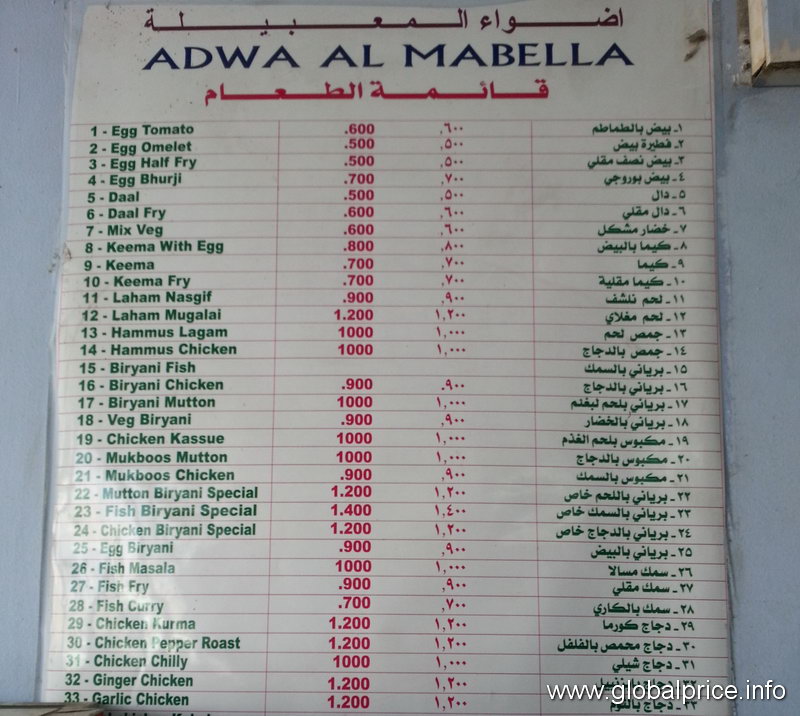 اضواء المعبيلة
ADWA AL MABELLA
قائمة الطعام
1 - Egg Tomato .600 ,٦٠٠ ١ـ بيض بالطماطم
2 - Egg Omelet .500 ,٥٠٠ ٢ـ فطيرة بيض
3 - Egg Half Fry .500 ,٥٠٠ ٣ـ بيض نصف مقلي
4 - Egg Bhurji .700 ,٧٠٠ ٤ـ بيض بوروجي
5 - Daal .500 ,٥٠٠ ٥ـ دال
6 - Daal Fry .600 ,٦٠٠ ٦ـ دال مقلي
7 - Mix Veg .600 ,٦٠٠ ٧ـ خضار مشكل
8 - Keema With Egg .800 ,٨٠٠ ٨ـ كيما بالبيض
9 - Keema .700 ,٧٠٠ ٩ـ كيما
10 - Keema Fry .700 ,٧٠٠ ١٠ـ كيما مقلية
11 - Laham Nasgif .900 ,٩٠٠ ١١ـ لحم نلشف
12 - Laham Mugalai 1.200 ١,٢٠٠ ١٢ـ لحم مغلاي
13 - Hammus Lagam 1000 ١,٠٠٠ ١٣ـ جمص لحم
14 - Hammus Chicken 1000 ١,٠٠٠ ١٤ـ جمص بالدجاج
15 - Biryani Fish ١٥ـ برياني بالسمك
16 - Biryani Chicken .900 ,٩٠٠ ١٦ـ برياني بالدجاج
17 - Biryani Mutton 1000 ١,٠٠٠ ١٧ـ برياني بلحم لبغنم
18 - Veg Biryani .900 ,٩٠٠ ١٨ـ برياني بالخضار
19 - Chicken Kassue 1000 ١,٠٠٠ ١٩ـ مكبوس بلحم الغذم
20 - Mukboos Mutton 1000 ١,٠٠٠ ٢٠ـ مكبوس بالدجاج
21 - Mukboos Chicken .900 ,٩٠٠ ٢١ـ مكبوس بالسمك
22 - Mutton Biryani Special 1.200 ١,٢٠٠ ٢٢ـ برياني باللحم خاص
23 - Fish Biryani Special 1.400 ١,٤٠٠ ٢٣ـ برياني بالسمك خاص
24 - Chicken Biryani Special 1.200 ١,٢٠٠ ٢٤ـ برياني بالدجاج خاص
25 - Egg Biryani .900 ,٩٠٠ ٢٥ـ برياني بالبيض
26 - Fish Masala 1000 ١,٠٠٠ ٢٦ـ سمك مسالا
27 - Fish Fry .900 ,٩٠٠ ٢٧ـ سمك مقلي
28 - Fish Curry .700 ,٧٠٠ ٢٨ـ سمك بالكاري
29 - Chicken Kurma 1.200 ١,٢٠٠ ٢٩ـ دجاج كورما
30 - Chicken Pepper Roast 1.200 ١,٢٠٠ ٣٠ـ دجاج محمص بالفلفل
31 - Chicken Chilly 1000 ١,٠٠٠ ٣١ـ دجاج شيلي
32 - Ginger Chicken 1.200 ١,٢٠٠ ٣٢ـ دجاج
33 - Garlic Chicken 1.200 ١,٢٠٠ ٣٣ـ دجاج
www.globalprice.info